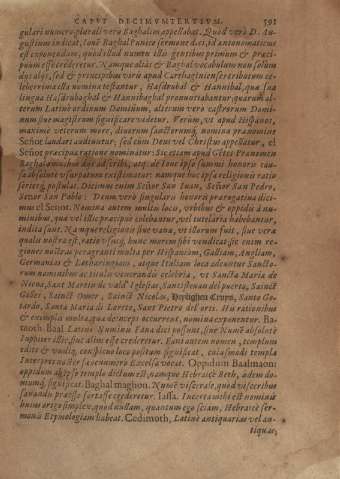 CAPVT DECIMVMTERTIVM. 591
gulari numero plurali verò Baghalim appellabat. Quòd verò D. Au-
gustinus indicat, sonũ Baghal Punico sermone dici, id antonomaticωs
est exponendum, quòd illud numen illis gentibus primum & præci-
puum esse crederetur. Namque aliàs & Baghal vocabulum non solùm
dici, sed & principibus viris apud Carthaginenses tributum ce-
leberrima illa nomina testantur, Hasdrubal & Hannibal, quæ sua
lingua Hasdrubaghal & Hannibaghal pronuntiabantur, quarum al-
terum Latinè ardinum Dominum, alterum verò castrorum Domi-
num siue magistrum significare videtur. Verùm, vt apud Hispanos,
maximè veterum more, diuorum sanctorumq́; nomina prænomine
Señor laudari audiuntur, sed cùm Deus vel Christus appellatur, el
Señor præcipua ratione nominatur: Sic etiam apud Gẽtes Prænomen
Baghal omnibus dijs adscribi, atq; de Ioue ipso summi honoris cau-
sa absolutè vsurpatum existimatur: namque hoc ipsa religionis ratio
postulat. Dicimus enim Señor San Iuan, Señor San Pedro,
Señor San Pablo: Deum verò singularis honoris prærogatiua dici-
mus el Señor. Nomina autem multis locis, vrbibus & oppidis à nu-
minibus, quæ vel illic præcipuè colebantur, vel tutelaria habebantur,
indita sunt. Namque religionis siue vana, vt illorum fuit, siue vera
qualis nostra est, ratio & vsus, hunc morem sibi vendicat: sic enim re-
giones nostras peragranti multa per Hispaniam, Galliam, Angliam,
Germanias & Lotharingiam, atque Italiam loca adeuntur Sancto-
rum nominibus ac titulis venerandis celebria, vt Sancta Maria de
Nieua, Sant Martin de vald' Iglesias, Santisteuan del puerto, Sainct
Gober, Sainct Omer, Sainct Nicolas, Heylighen Cruyn, Santo Go-
tardo, Santa Maria di Loreto, Sant Pietro del orto. His rationibus
& exemplis multa, quæ deinceps occurrent, nomina exponentur. Ba-
moth Baal Latinè Numinis Fana dici possunt, siue Numẽ absolutè
Iuppiter illic, siue alius esse crederetur. Erant autem nomen, templum
edito & vndiq; conspicuo loco positum significat, cuiusmodi templa
Interpres noster sæpenumero Excelsa vocat. Oppidum Baalmaon:
oppidum ab ipso templo dictum est, namque Hebraicè Beth, ædem do-
mumq́; significat. Baghal maghon. Numẽ visceralè, quòd visceribus
sanandis præesse fortasse crederetur. Iassa. Incerta mihi est nominis
huius origo simplex, quod nullam, quantum ego sciam, Hebraicè ser-
monis Etymologiam habeat. Cedimoth, Latinè antiquariae vel an-
tiquae,